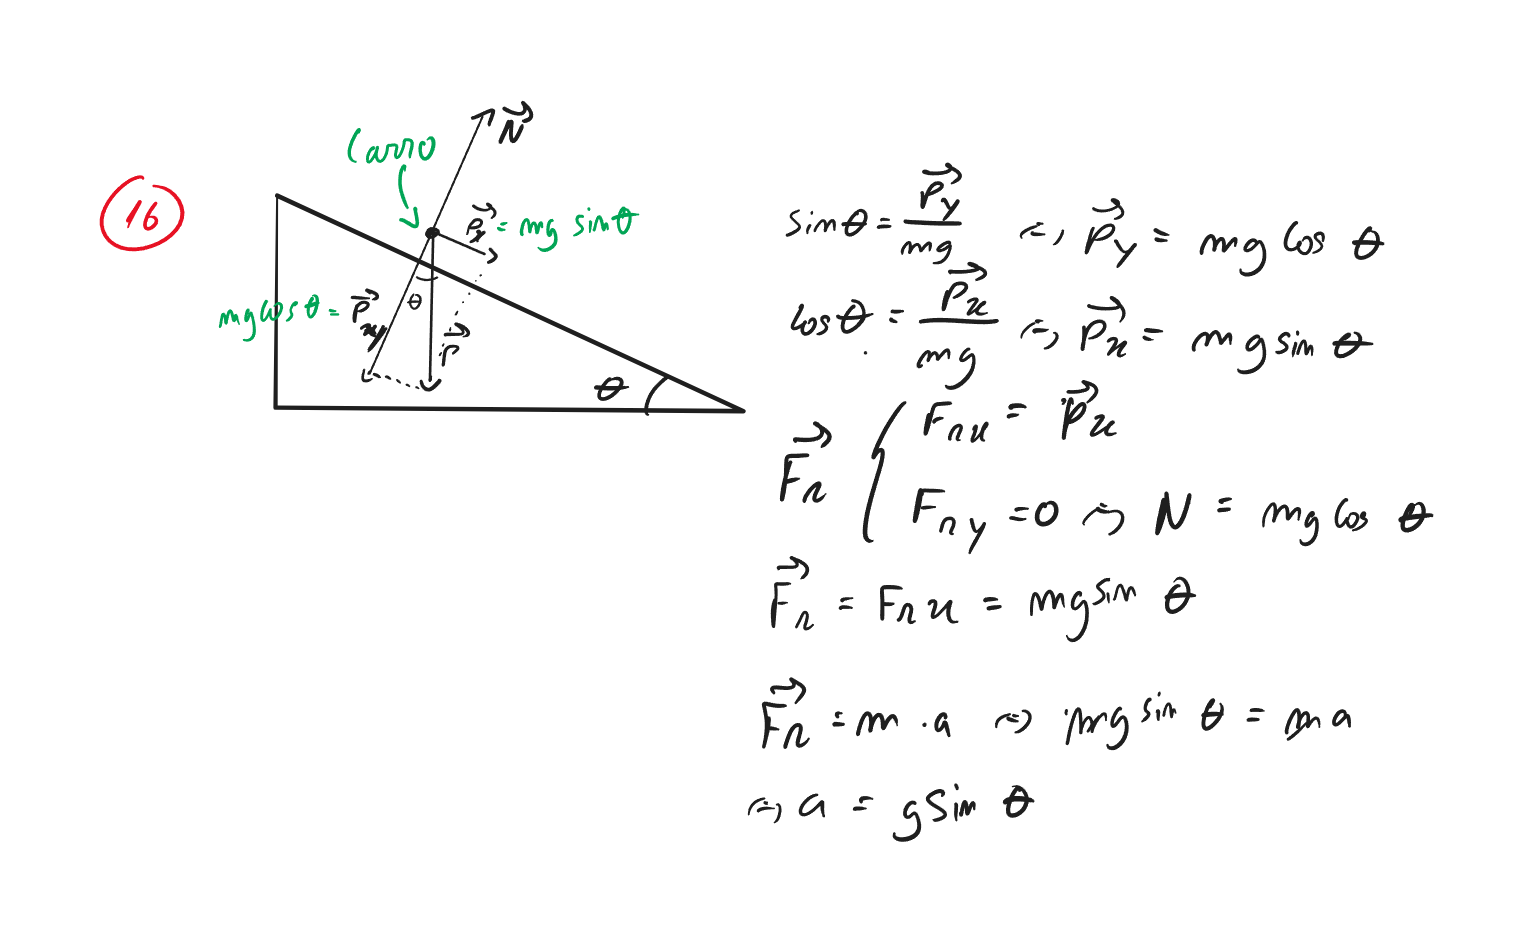 16
Carro
N⃗
P⃗x = mg sin θ
mg cos θ = P⃗y
θ
P⃗
θ
sin θ = P⃗y / mg ⇔ P⃗y = mg cos θ
cos θ = P⃗x / mg ⇔ P⃗x = mg sin θ
F⃗r { Frx = P⃗x
Fry = 0 ⇔ N = mg cos θ
F⃗r = Frx = mg sin θ
F⃗r = m . a ⇔ mg sin θ = ma
⇔ a = g sin θ